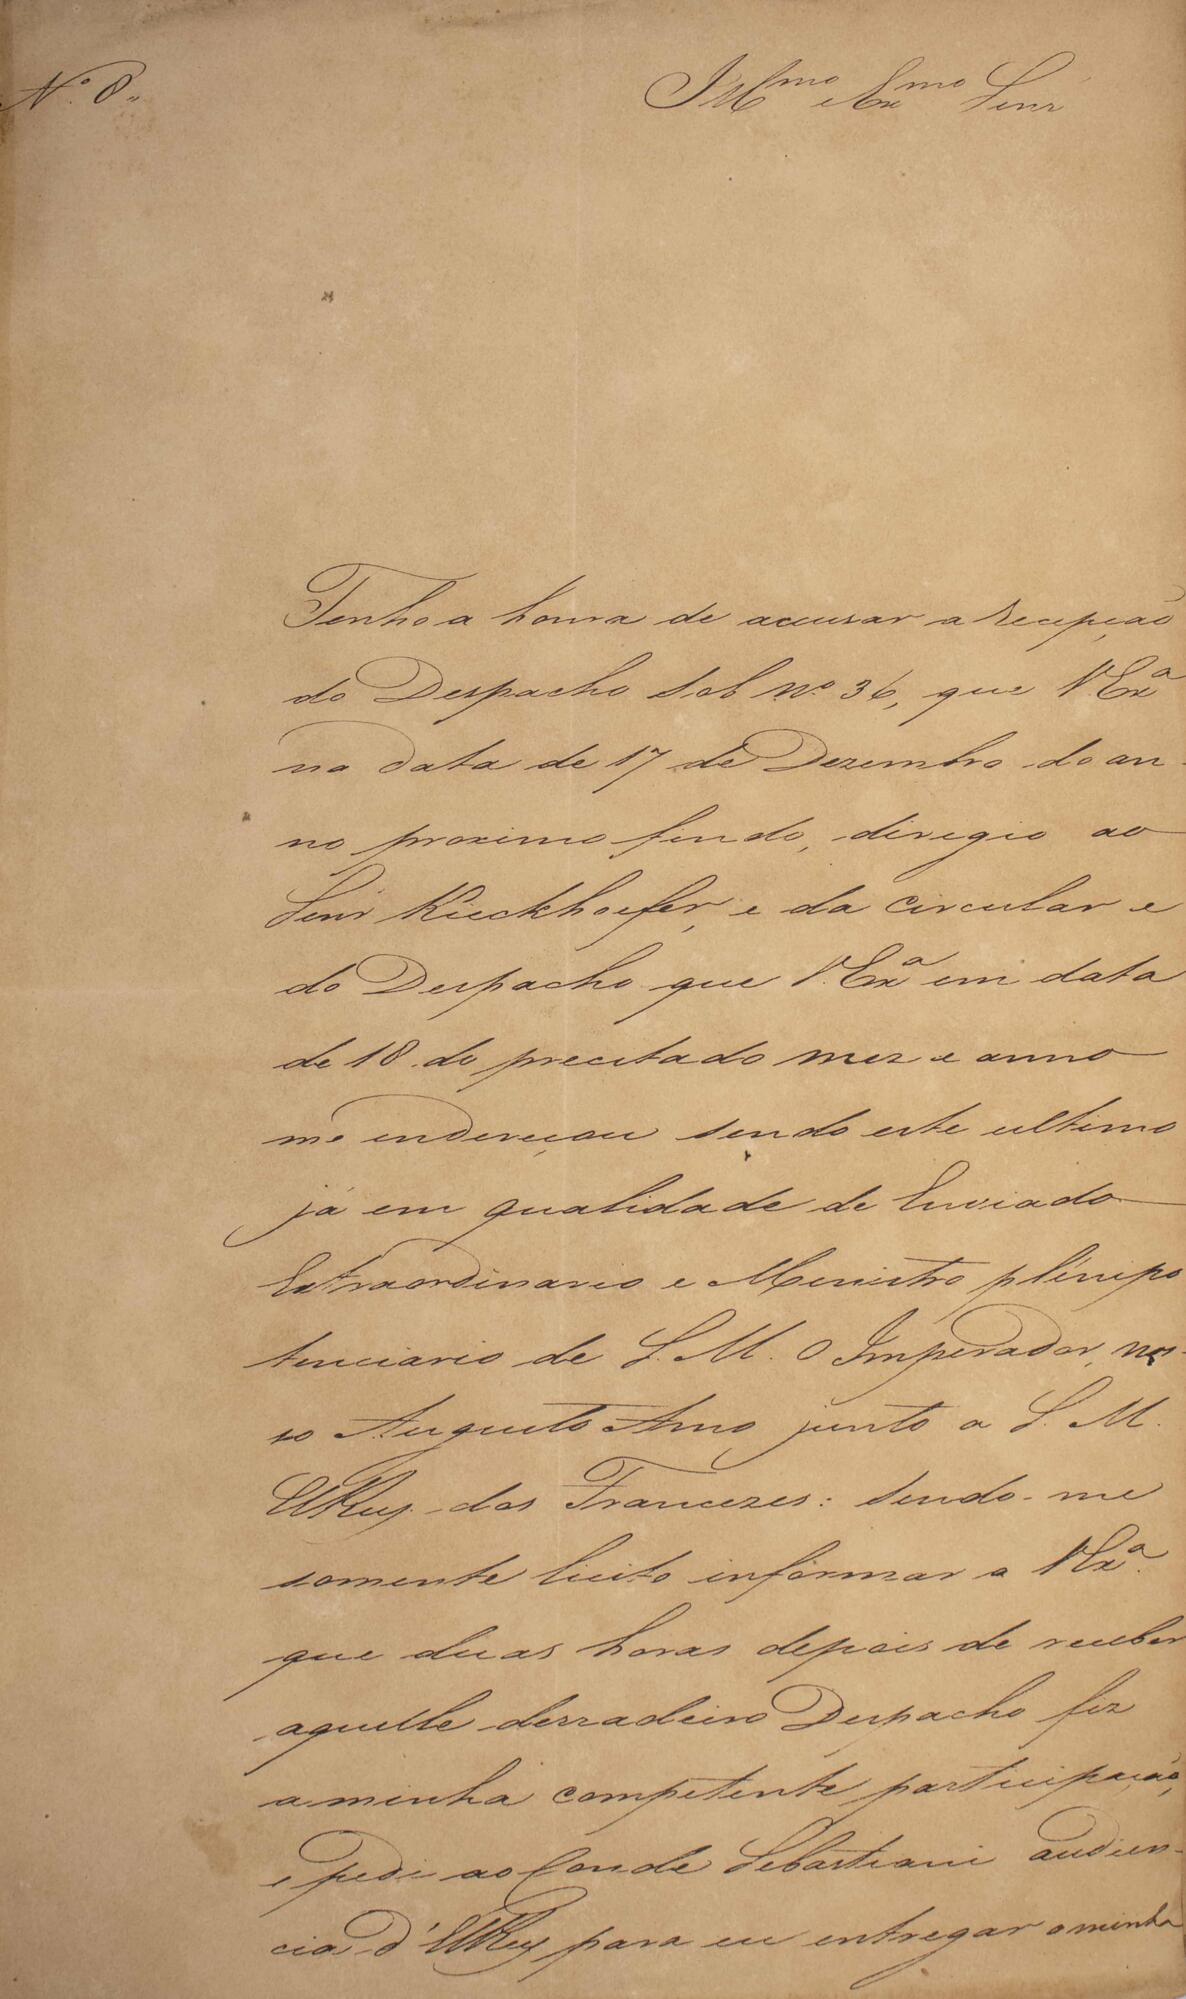 Nº 8,,
Illmo e Exmo Senr
Tenho a honra de accusar a recepção
do Despacho sob nº 36, que V Exª
na data de 17 de Dezembro do an-
no proximo findo, diregio ao
Senr Kieckhoefer, e da circular e
do Despacho que V. Exª em data
de 18 do precitado mez e anno
me endereçou sendo este ultimo
já em qualidade de Enviado
Extraordinario e Menistro plenipo
tenciario de S. M. O Imperador, nos-
so Augusto Amo junto a S. M.
ElRey dos Francezes: sendo-me
somente licito informar a V Exª.
que duas horas depois de receber
aquelle derradeiro Despacho fiz
a minha competente participação,
e pedi ao Conde Sebastiani audien-
cia d'ElRey para eu entregar a minha